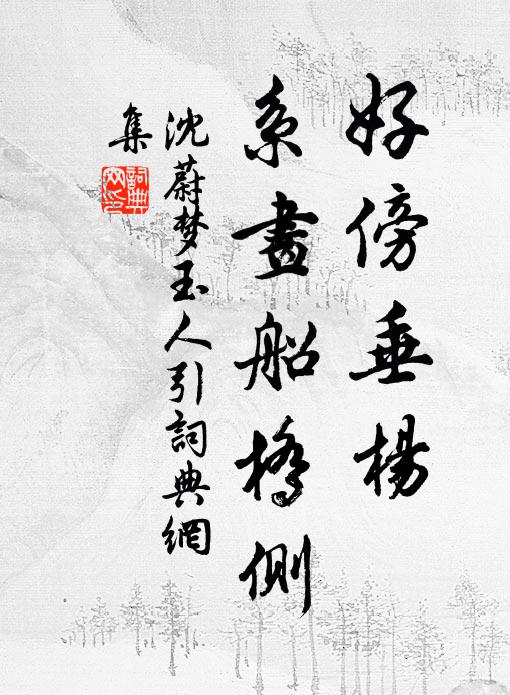 好傍垂楊
系畫船橋側
沈蔚梦玉人引詞典網
集
詞典
网印